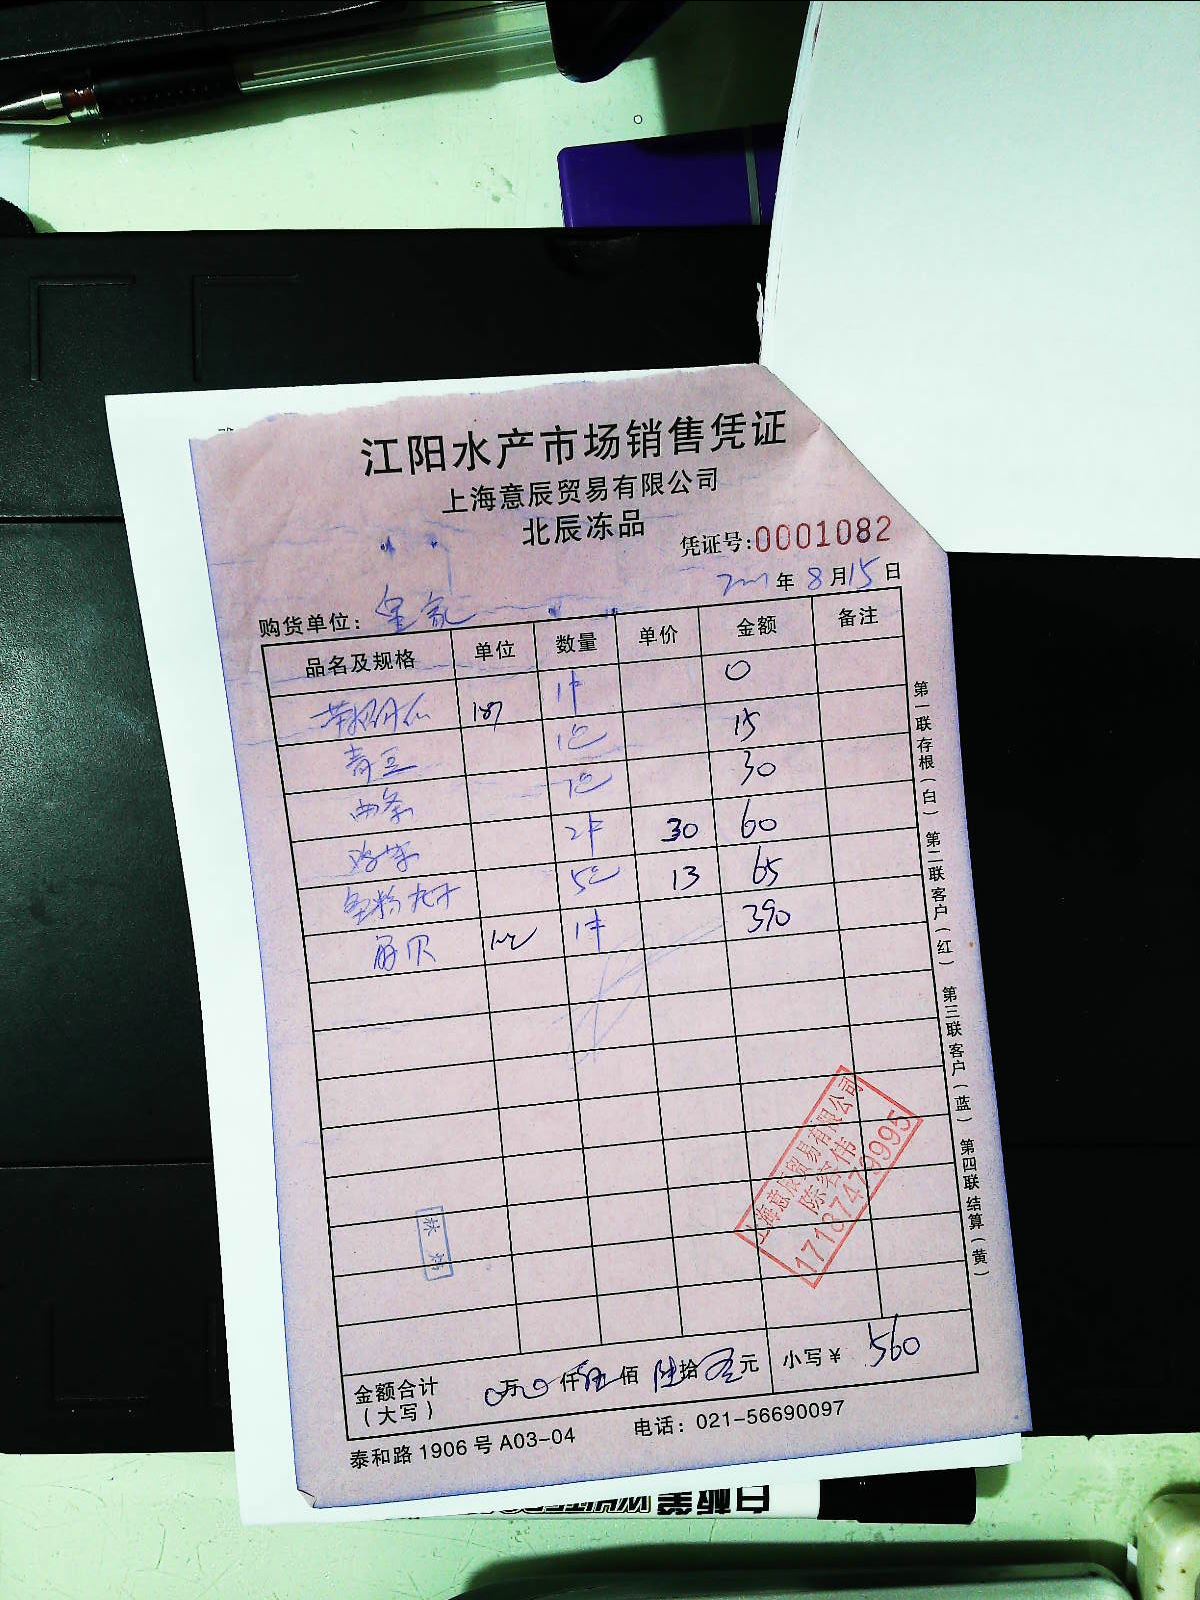 江阳水产市场销售凭证
上海意辰贸易有限公司
北辰冻品
凭证号:0001082
年 8月15日
购货单位:
品名及规格 单位 数量 单价 金额 备注
1件 0
青豆 1包 15
1包 30
2件 30 60
鱼粉丸子 5包 13 65
扇贝 1件 390
第一联存根(白) 第二联客户(红) 第三联客户(蓝) 第四联结算(黄)
上海意辰贸易有限公司
陈宏伟
17187479995
林炳
金额合计(大写) 0万0仟伍佰陆拾元 小写¥ 560
泰和路1906号A03-04 电话:021-56690097
白板笔 WHITEBO